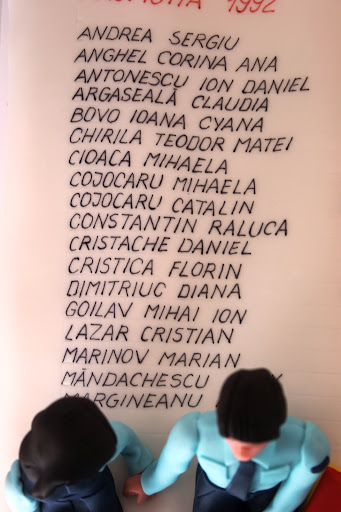 1992
ANDREA SERGIU
ANGHEL CORINA ANA
ANTONESCU ION DANIEL
ARGASEALĂ CLAUDIA
BOVO IOANA CYANA
CHIRILA TEODOR MATEI
CIOACA MIHAELA
COJOCARU MIHAELA
COJOCARU CATALIN
CONSTANTIN RALUCA
CRISTACHE DANIEL
CRISTICA FLORIN
DIMITRIUC DIANA
GOILAV MIHAI ION
LAZAR CRISTIAN
MARINOV MARIAN
MĂNDACHESCU
MARGINEANU